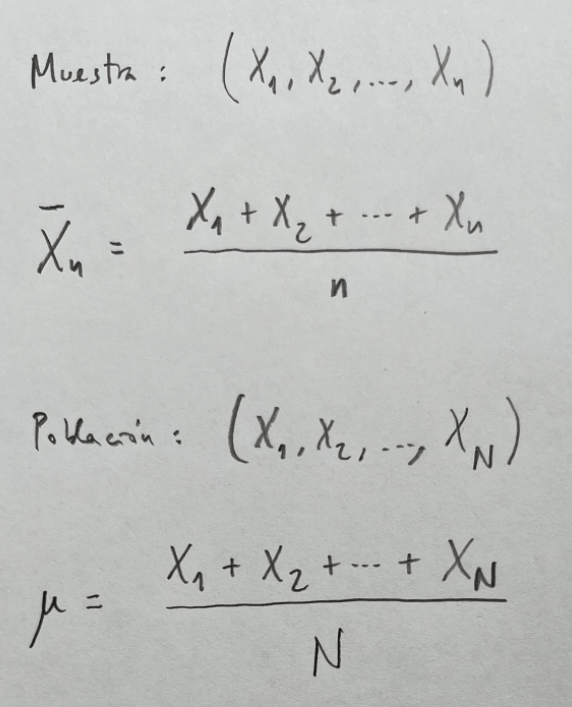 Muestra : (X₁, X₂, ..., Xₙ)
X̄ₙ = (X₁ + X₂ + ... + Xₙ) / n
Población : (X₁, X₂, ..., X_N)
μ = (X₁ + X₂ + ... + X_N) / N